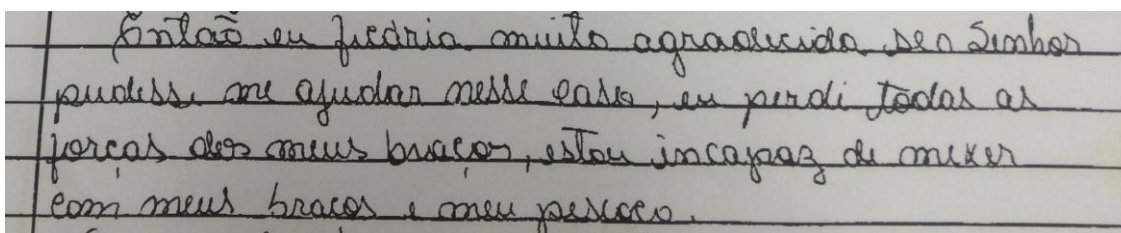 Então eu ficaria muito agradecida se o Senhor
pudesse me ajudar nesse caso, eu perdi todas as
forças dos meus braços, estou incapaz de mexer
com meus braços e meu pescoço.